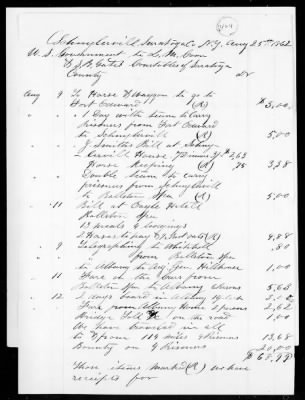 Schuylerville Saratoga Co N.Y. Aug 25th 1862
U.S. Government to L. M. Coon
& J. W. Gates Constables of Saratoga
County Dr
Aug 9 To Horse & Waggon to go to
Fort Edward (R) $3.00
" " 1 Day with team to carry
prisoners from Fort Edward
to Schuylerville (R) 5.00
" " J Smiths Bill at Schuy-
lerville House $2,63
Horse Keeping (R) ,75 3,28
Double team to carry
prisoners from Schuylerville
to Ballston Spa (R) 5,00
" 11 Bill at Eagle Hotel
Ballston Spa
13 meals & lodgings
2 Horses to hay (R) 9,88
" 9 Telegraphing to Whitehall ,80
" " from Ballston Spa
to Albany to Adj. Gen. Hillhouse 1,00
" 11 Fare on the Cars from
Ballston Spa to Albany 5,63
" 12 2 days board in Albany
Fare from Albany Home 2 persons 2,62
Bridge Toll on the road 1,00
We have traveled in all
to & from 114 miles 13,68
Bounty on 4 prisoners 20,00
$68,99
Those items marked (R) we have
receipts for